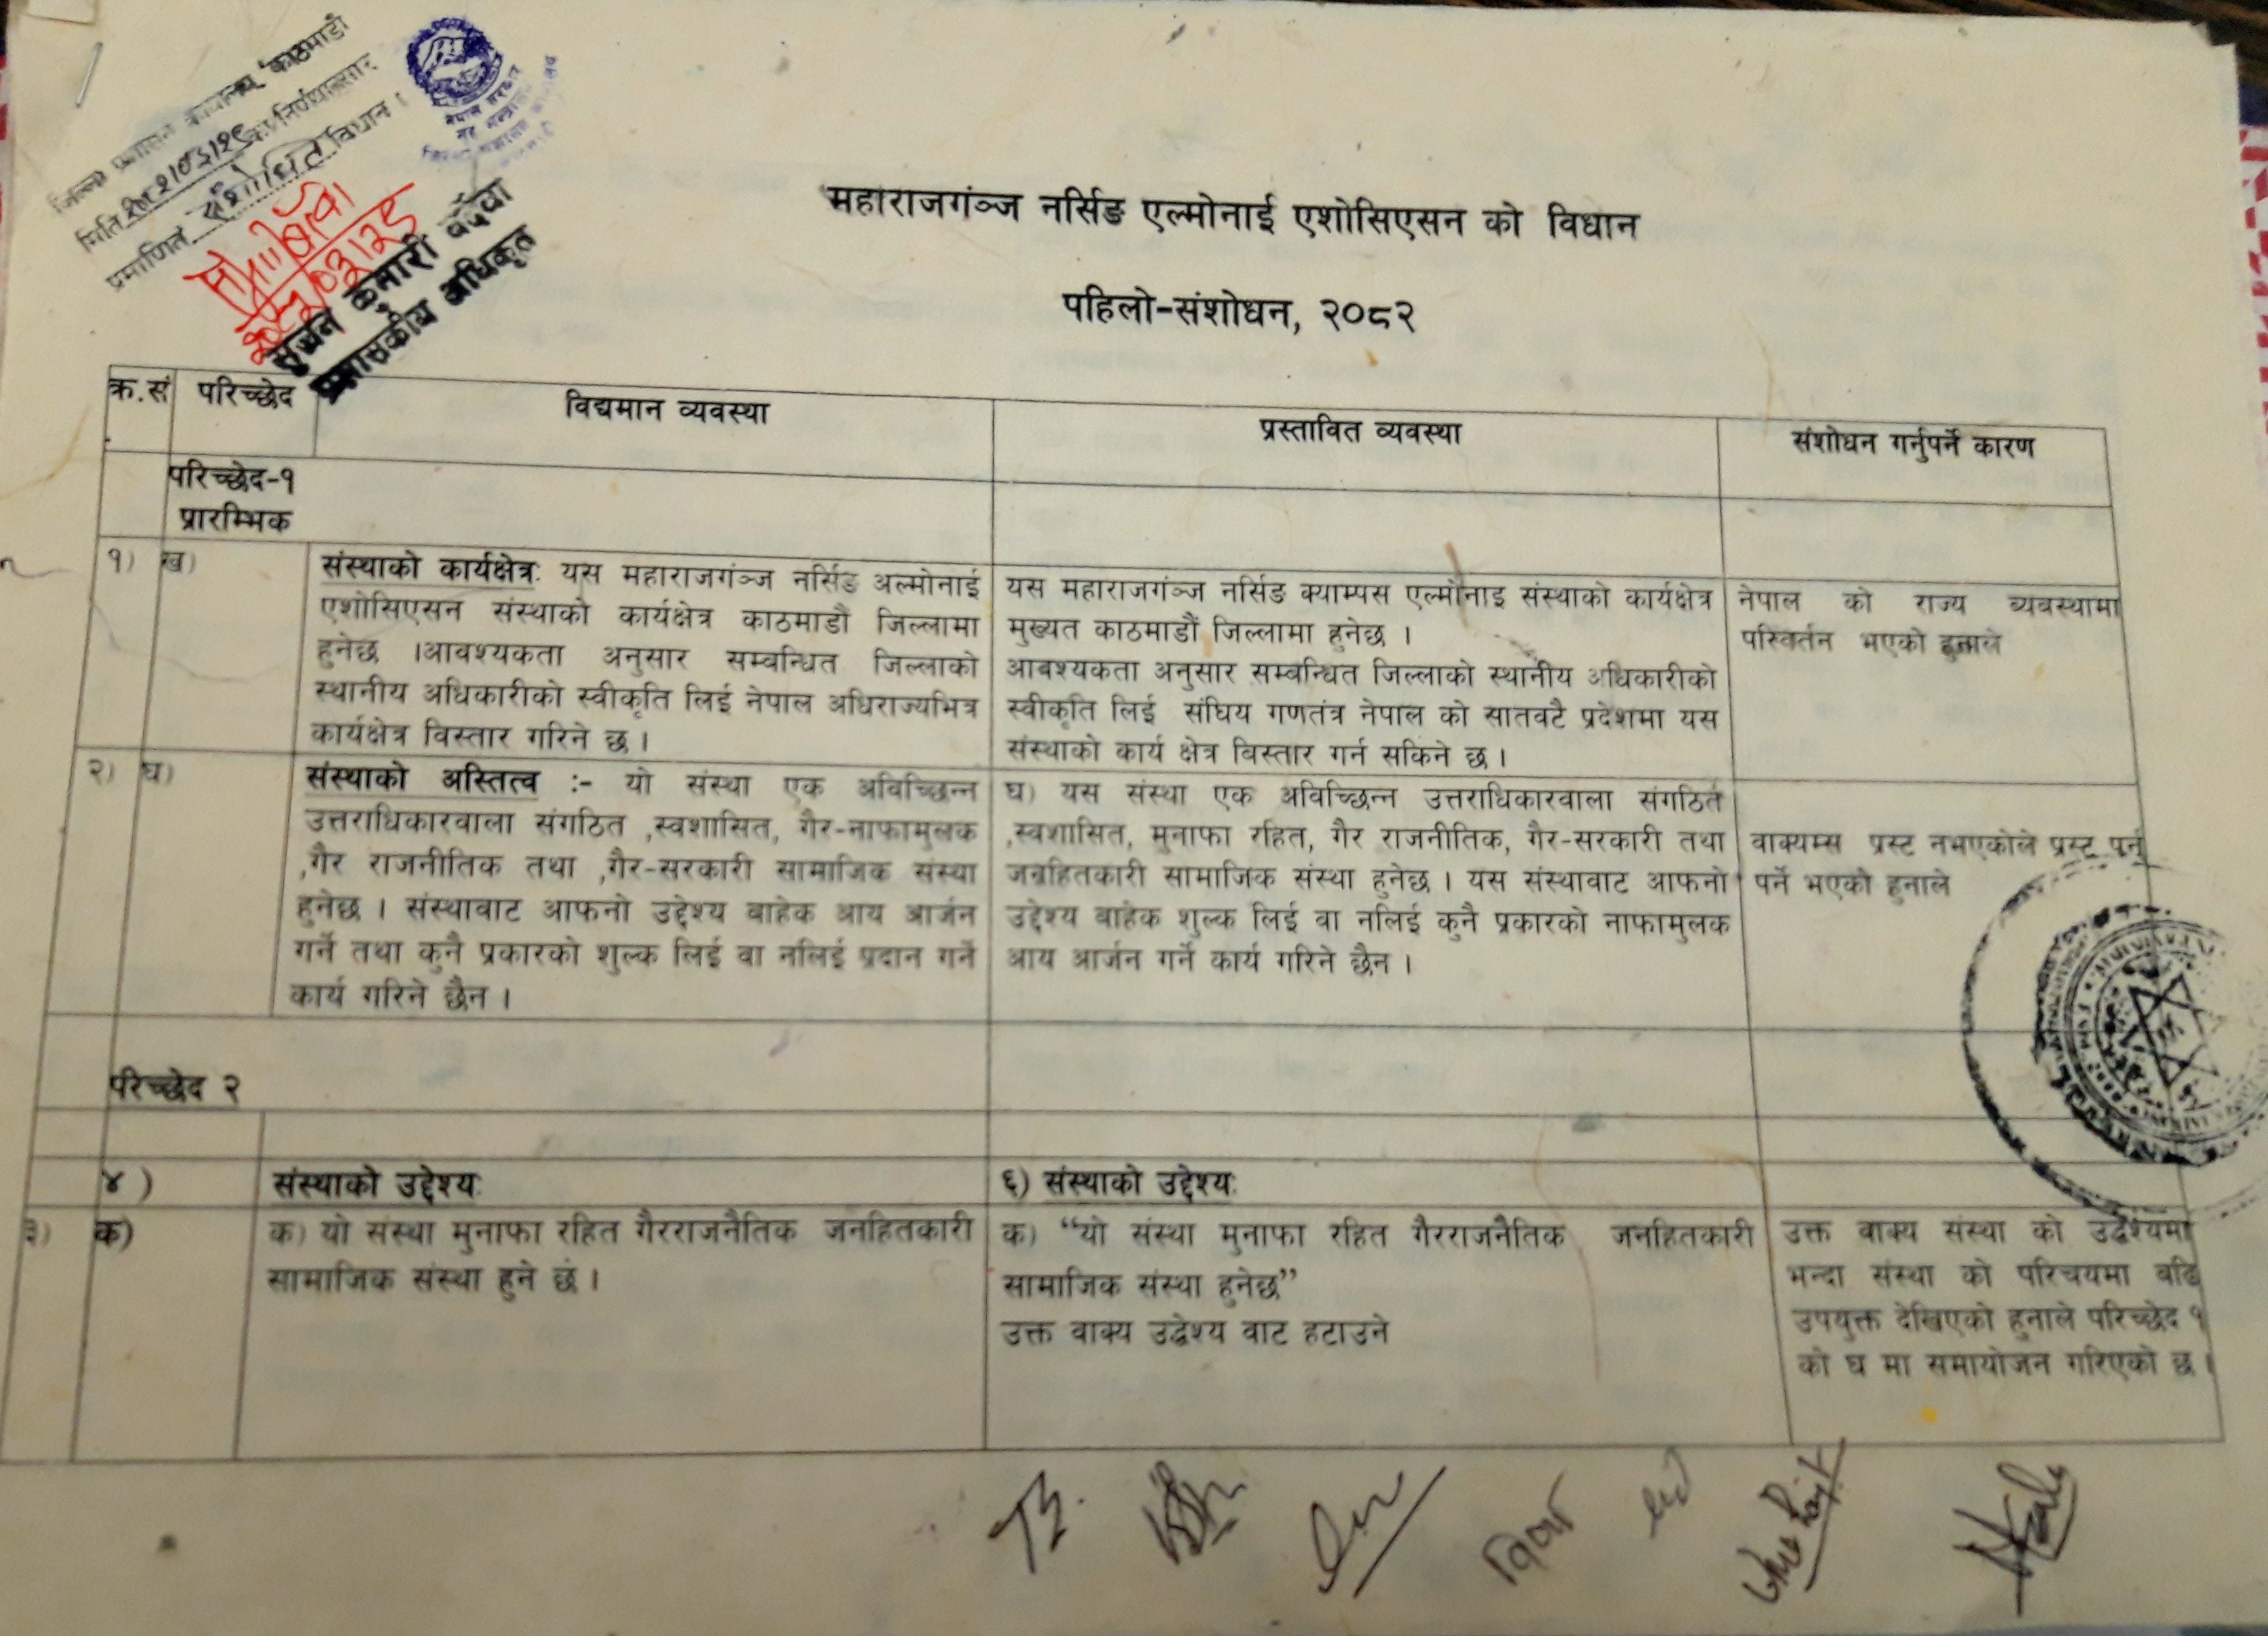 जिल्ला प्रशासन कार्यालय काठमाडौं
मिति का निर्णयानुसार
प्रमाणित संशोधित विधान ।
नेपाल सरकार
गृह मन्त्रालय
कुमारी
प्रशासकीय अधिकृत
महाराजगंञ्ज नर्सिङ एल्मोनाई एशोसिएसन को विधान
पहिलो-संशोधन, २०८२
क्र.सं परिच्छेद विद्यमान व्यवस्था प्रस्तावित व्यवस्था संशोधन गर्नुपर्ने कारण
परिच्छेद-१
प्रारम्भिक
१) ख)
संस्थाको कार्यक्षेत्र: यस महाराजगंञ्ज नर्सिङ अल्मोनाई
एशोसिएसन संस्थाको कार्यक्षेत्र काठमाडौं जिल्लामा
हुनेछ ।आवश्यकता अनुसार सम्बन्धित जिल्लाको
स्थानीय अधिकारीको स्वीकृति लिई नेपाल अधिराज्यभित्र
कार्यक्षेत्र विस्तार गरिने छ ।
यस महाराजगंञ्ज नर्सिङ क्याम्पस एल्मोनाइ संस्थाको कार्यक्षेत्र
मुख्यत काठमाडौं जिल्लामा हुनेछ ।
आबश्यकता अनुसार सम्बन्धित जिल्लाको स्थानीय अधिकारीको
स्वीकृति लिई संघिय गणतंत्र नेपाल को सातवटै प्रदेशमा यस
संस्थाको कार्य क्षेत्र विस्तार गर्न सकिने छ ।
नेपाल को राज्य व्यवस्थामा
परिवर्तन भएको हुनाले
२) घ)
संस्थाको अस्तित्व :- यो संस्था एक अविच्छिन्न
उत्तराधिकारवाला संगठित ,स्वशासित, गैर-नाफामुलक
,गैर राजनीतिक तथा ,गैर-सरकारी सामाजिक संस्था
हुनेछ । संस्थाबाट आफनो उद्देश्य बाहेक आय आर्जन
गर्ने तथा कुनै प्रकारको शुल्क लिई वा नलिई प्रदान गर्ने
कार्य गरिने छैन ।
घ) यस संस्था एक अविच्छिन्न उत्तराधिकारवाला संगठित
,स्वशासित, मुनाफा रहित, गैर राजनीतिक, गैर-सरकारी तथा
जनहितकारी सामाजिक संस्था हुनेछ । यस संस्थावाट आफनो
उद्देश्य बाहेक शुल्क लिई वा नलिई कुनै प्रकारको नाफामुलक
आय आर्जन गर्ने कार्य गरिने छैन ।
वाक्यम्स प्रस्ट नभएकोले प्रस्ट पर्नु
पर्ने भएको हुनाले
परिच्छेद २
४ ) संस्थाको उद्देश्य: ६) संस्थाको उद्देश्य:
३) क)
क) यो संस्था मुनाफा रहित गैरराजनैतिक जनहितकारी
सामाजिक संस्था हुने छ ।
क) “यो संस्था मुनाफा रहित गैरराजनैतिक जनहितकारी
सामाजिक संस्था हुनेछ”
उक्त वाक्य उद्धेश्य वाट हटाउने
उक्त वाक्य संस्था को उद्धेश्यमा
भन्दा संस्था को परिचयमा बढि
उपयुक्त देखिएको हुनाले परिच्छेद १
को घ मा समायोजन गरिएको छ ।